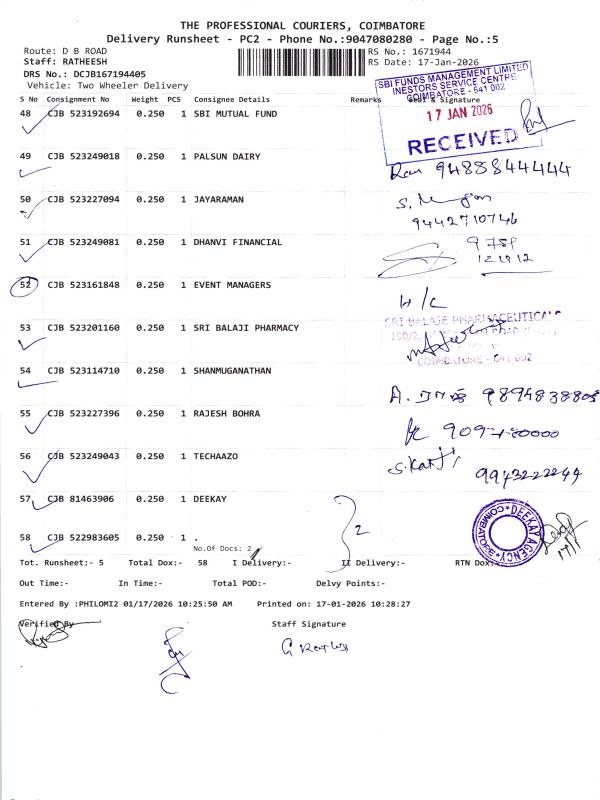 THE PROFESSIONAL COURIERS, COIMBATORE
Delivery Runsheet - PC2 - Phone No.:9047080280 - Page No.:5
Route: D B ROAD
RS No.: 1671944
Staff: RATHEESH
RS Date: 17-Jan-2026
DRS No.: DCJB167194405
Vehicle: Two Wheeler Delivery
SBI FUNDS MANAGEMENT LIMITED
INESTORS SERVICE CENTRE
COIMBATORE - 641 002
17 JAN 2026
RECEIVED
S No Consignment No Weight PCS Consignee Details Remarks Seal & Signature
48 CJB 523192694 0.250 1 SBI MUTUAL FUND
49 CJB 523249018 0.250 1 PALSUN DAIRY
9488844444
50 CJB 523227094 0.250 1 JAYARAMAN
9442710746
51 CJB 523249081 0.250 1 DHANVI FINANCIAL
52 CJB 523161848 0.250 1 EVENT MANAGERS
H/C
53 CJB 523201160 0.250 1 SRI BALAJI PHARMACY
SRI BALAJE PHARMACEUTICALS
COIMBATORE - 641 002
54 CJB 523114710 0.250 1 SHANMUGANATHAN
9894838805
55 CJB 523227396 0.250 1 RAJESH BOHRA
56 CJB 523249043 0.250 1 TECHAAZO
9943222244
57 CJB 81463906 0.250 1 DEEKAY
DEEKAY AGENCY
COIMBATORE
58 CJB 522983605 0.250 1 .
2
No.Of Docs: 2
Tot. Runsheet:- 5 Total Dox:- 58 I Delivery:- II Delivery:- RTN Dox:
Out Time:- In Time:- Total POD:- Delvy Points:-
Entered By :PHILOMI2 01/17/2026 10:25:50 AM Printed on: 17-01-2026 10:28:27
Verified By Staff Signature